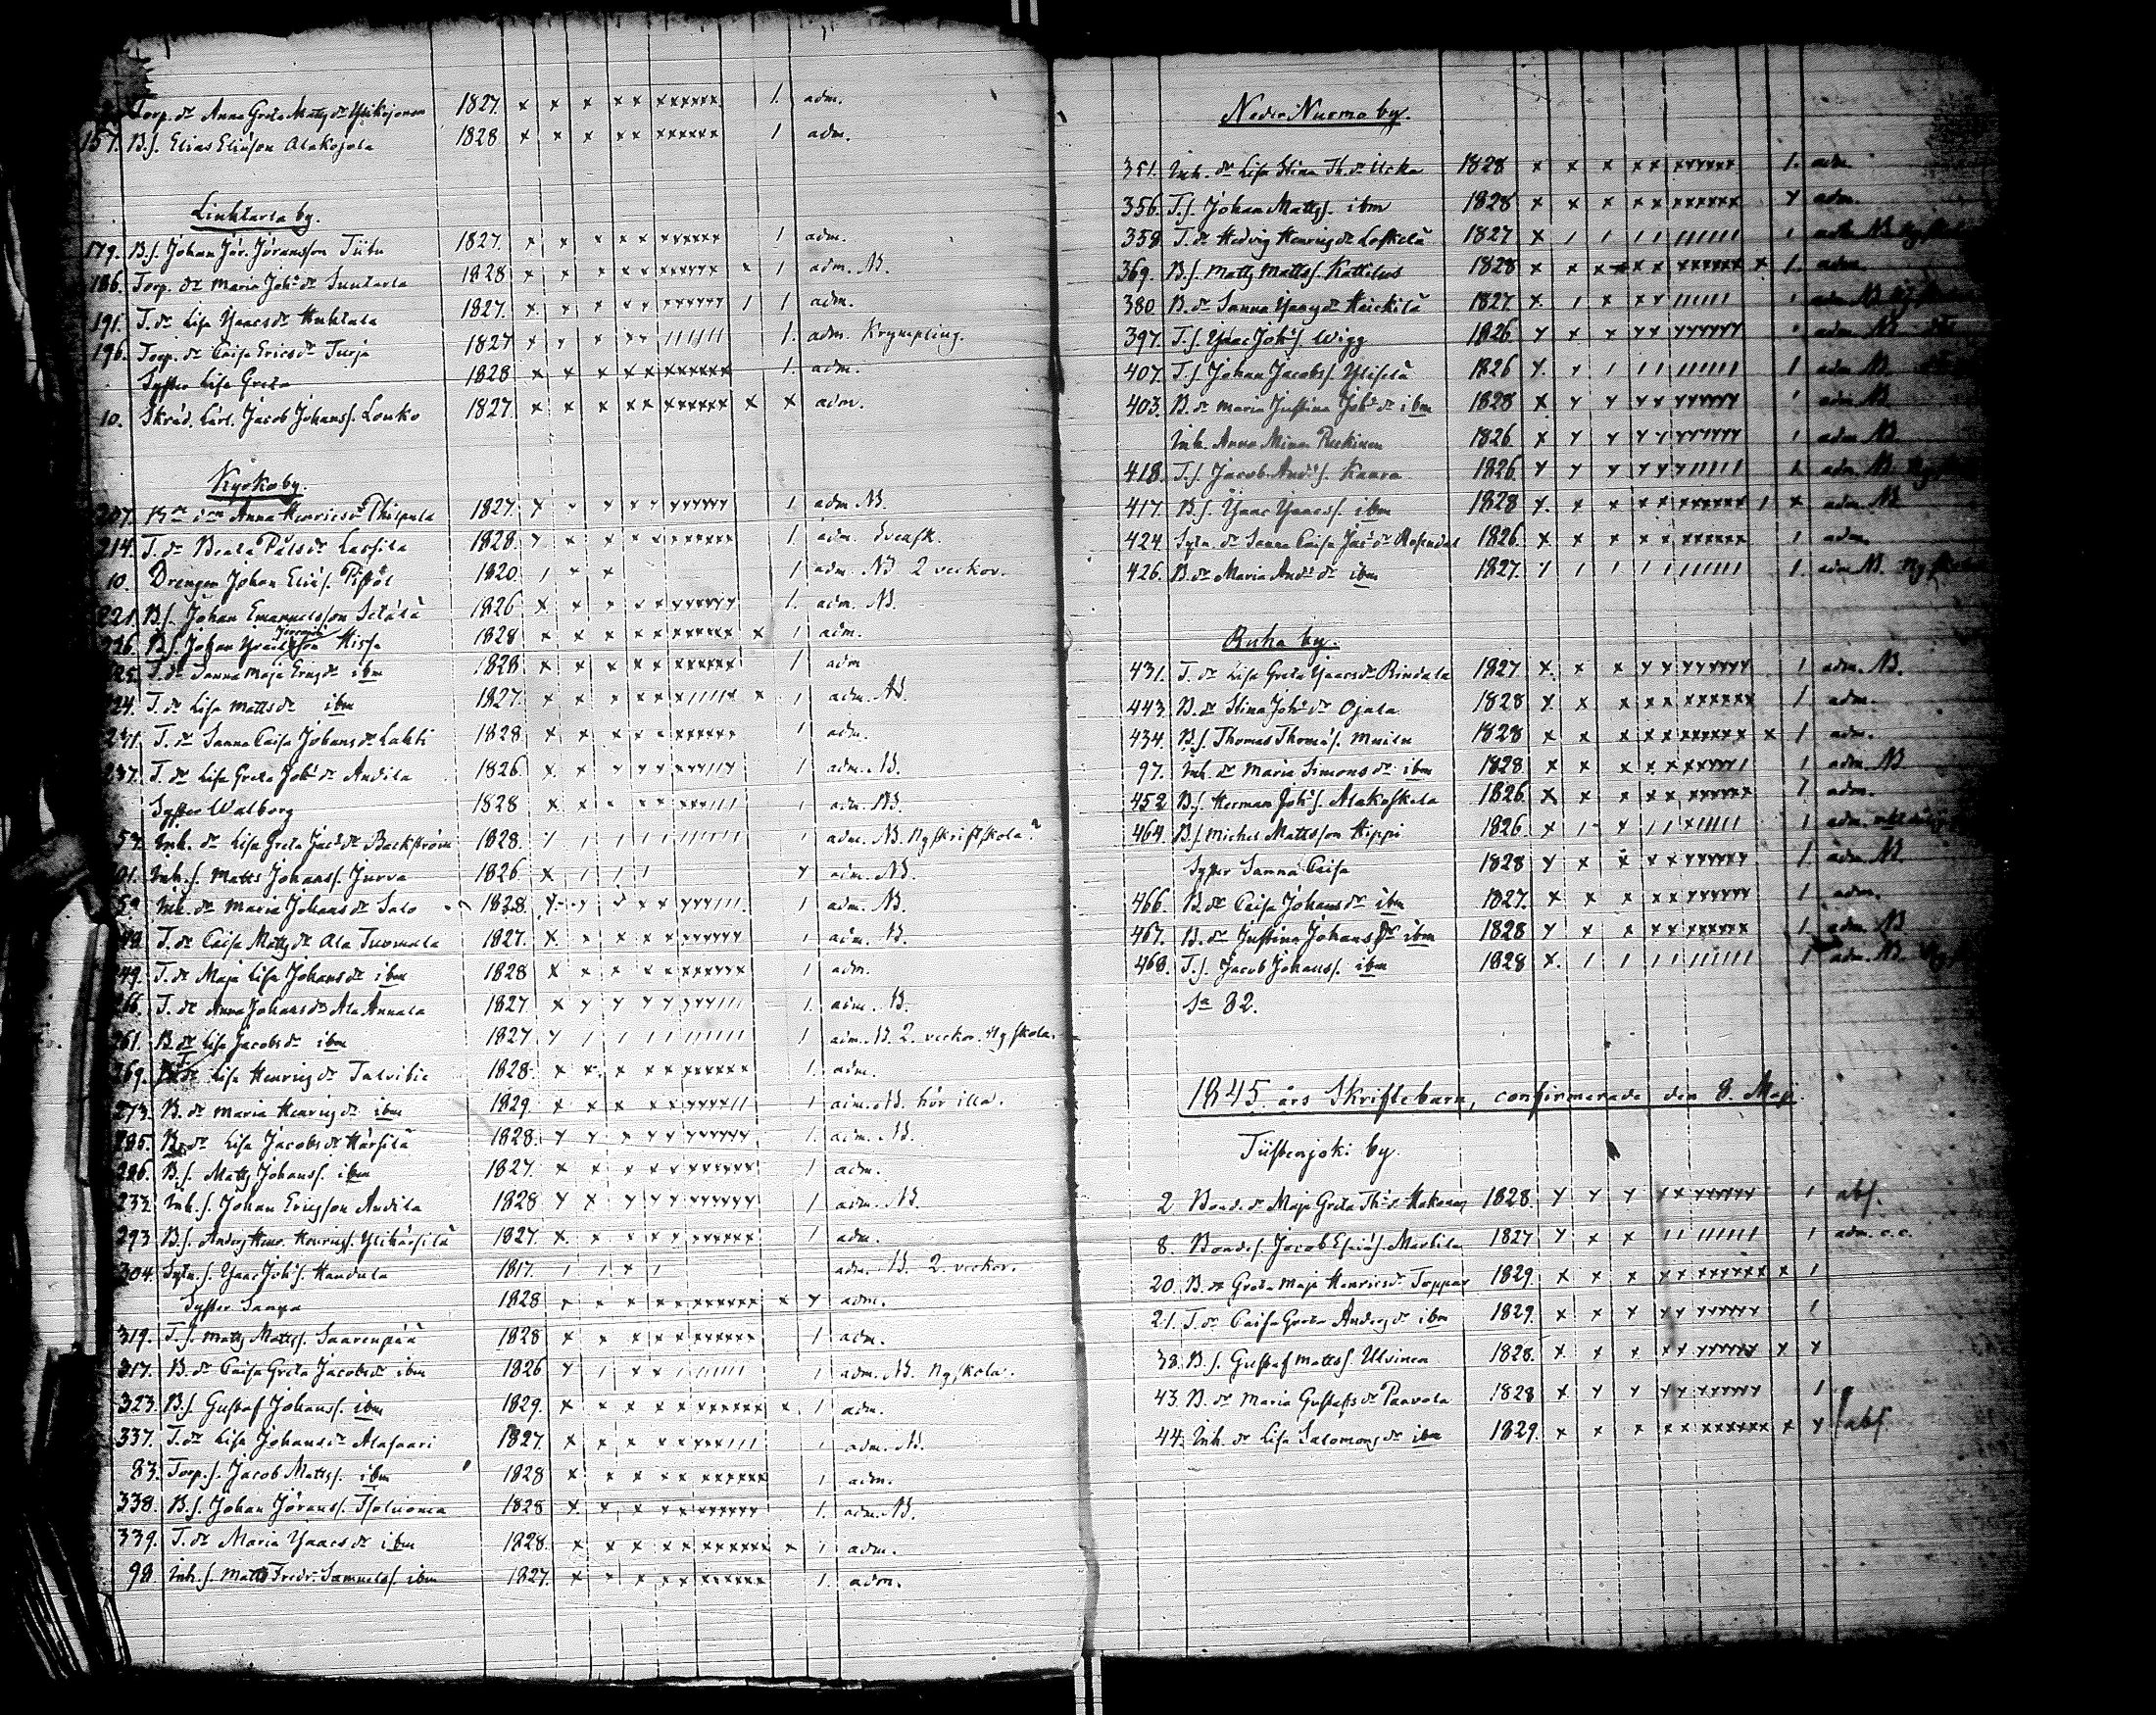 Torp. dr Anna Greta Matts dr Ylikojonen 1827. x x x x x xxxxxx 1. adm.
157. B.s. Elias Eliasson Alakojola 1828 x x x x x xxxxxx 1 adm.
Liuhtarla by.
179. B.s. Johan Jör. Jöransson Tiitu 1827. x x x x x xxxxxx 1 adm.
186. Torp. dr Maria Joh. dr 1828 x x x x x xxxxxx x 1 adm. NB.
191. T. dr Lisa Isaacs dr Huhtala 1827. x x x x x xxxxxx 1 1 adm.
196. Torp. dr Caisa Erics dr Turja 1827 x x x x x 111111 1. adm. Krympling.
Syster Lisa Greta 1828 x x x x x xxxxxx 1. adm.
10. Skräd. Lärl. Jacob Johanss. Louko 1827. x x x x x xxxxxx x x adm.
Kyrkoby.
207. Anna Henrics dr Philpula 1827. x x x x x xxxxxx 1 adm. NB.
214. T. dr Beata Påls dr Lassila 1828. x x x x x xxxxxx 1. adm. Svensk.
10. Drengen Johan Elias. Pistol 1820. 1 x x 1 adm. NB 2 veckor.
221. B.s. Johan Emanuelsson Setälä 1826 x x x x x xxxxxx 1. adm. NB.
226. B.s. Johan Hissa 1828 x x x x x xxxxxx x 1 adm.
225. T. dr Sanna Maja ibm 1828 x x x x x xxxxxx 1 adm
224. T. dr Lisa Matts dr ibm 1827. x x x x x x1111x x 1 adm. NB.
241. T. dr Sanna Caisa Johans dr Lahti 1828 x x x x x xxxxxx 1 adm.
237. T. dr Lisa Greta Joh. dr Andila 1826 x x x x x xxx11x 1 adm. NB.
Syster Walborg 1828 x x x x x xxx111 1 adm. NB.
57. Inh. dr Lisa Greta Jac. dr Backström 1828. 1 1 1 1 1 111111 1 adm. NB. Ny skriftskola?
101. Inh. s. Matts Johanss. Jurva 1826 x 1 1 1 x adm. NB.
59. Inh. dr Maria Johans dr Salo 1828. x x x x x xxx111 1 adm. NB.
248. T. dr Caisa Matts dr Ala Turmala 1827. x x x x x xxxxxx 1 adm. NB.
249. T. dr Maja Lisa Johans dr ibm 1828 x x x x x xxxxxx 1 adm.
266. T. dr Anna Johans dr Ala Annala 1827. x x x x x xxx111 1. adm. NB.
261. B. dr Lisa Jacobs dr ibm 1827 x 1 1 1 1 111111 1 adm. NB. 2. veckor. Ny skola.
269. dr Lisa Henrics dr Talvitie 1828. x x x x x xxxxxx 1. adm.
273. B. dr Maria Henrics dr ibm 1829. x x x x x xxxx11 1 adm. NB. hör illa.
285. B. dr Lisa Jacobs dr Härsilä 1828. x x x x x xxxxxx 1. adm. NB.
286. B.s. Matts Johanss. ibm 1827. x x x x x xxxxxx 1 adm.
233. Inh. s. Johan Ericsson Andila 1828 x x x x x xxxxxx 1 adm. NB.
293. B.s. Anders Henr. Henricss. Ylihärsilä 1827. x x x x x xxxxxx 1 adm.
304. Sytn. s. Isaac Joh. s. Handula 1817. 1 1 x 1 adm. NB. 2. veckor.
Syster Sanna 1828 x x x x x xxxxxx x x adm.
319. T.s. Matts Mattss. Saarenpää 1828 x x x x x xxxxxx 1 adm.
317. B. dr Caisa Greta Jacobs dr ibm 1826 x 1 x x 1 11111 1 adm. NB. Ny skola.
323. B.s. Gustaf Johanss. ibm 1829. x x x x x xxxxxx x 1 adm.
337. T. dr Lisa Johans dr Alasaari 1827. x x x x x xxx111 1 adm. NB.
83. Torp. s. Jacob Mattss. ibm 1828 x x x x x xxxxxx 1 adm.
338. B.s. Johan Jöranss. Isoluoma 1828 x x x x x xxxxxx 1. adm. NB.
339. T. dr Maria Isaacs dr ibm 1828. x x x x x xxxxxx x 1 adm.
98. Inh. s. Matts Fredr. Samuelss. ibm 1827. x x x x x xxxxxx 1. adm.
Neder Nurmo by.
351. Inh. dr Lisa Stina Th. dr Ucka 1828 x x x x x xxxxxx 1. adm.
356. T.s. Johan Mattss. ibm 1828 x x x x x xxxxxx x adm.
359. T. dr Hedvig Henrics dr Loskelä 1827 x 1 1 1 1 111111 1 adm. NB
369. B.s. Matts Mattss. Kattelus 1828 x x x x x xxxxxx x 1. adm.
380 B. dr Sanna Isaacs dr Heickilä 1827. x 1 x x x 111111 1 adm. NB
397. T.s. Isaac Joh. s. Wigg 1826. x x x x x xxxxxx 1 adm. NB
407. T.s. Johan Jacobs. Ylisilä 1826 x x 1 1 1 111111 1 adm NB
403. B. dr Maria Justina Joh. dr ibm 1828 x x x x x xxxxxx 1 adm NB
Inh. Anna Mina 1826 x x x x x xxxxxx 1 adm NB.
418. T.s. Jacob And. s. Kaura 1826. x x x x x x11111 1. adm. NB.
417. B.s. Isaac Isaacs. ibm 1828 x x x x x xxxxxx 1 x adm. NB
424. Sytn. dr Sanna Caisa Jac. dr Rosendal 1826. x x x x x xxxxxx 1 adm.
426. B. dr Maria And. dr ibm 1827. x 1 1 1 1 111111 1. adm NB. Ny
Ruha by.
431. T. dr Lisa Greta Isaacs dr Rindala 1827 x x x x x xxxxxx 1 adm. NB.
443. B. dr Stina Joh. dr Ojala 1828 x x x x x xxxxxx 1 adm.
434. B.s. Thomas Thomas. 1828 x x x x x xxxxxx x 1 adm.
97. Inh. dr Maria Simons dr ibm 1828. x x x x x xxxxx1 1 adm. NB
452 B.s. Herman Joh. s. Alakoskela 1826. x x x x x xxxxxx 1 adm.
464. B.s. Michel Mattsson Hippi 1826. x 1 x 1 1 x11111 1 adm.
Syster Sanna Caisa 1828 x x x x x xxxxxx 1 adm. NB.
466. B. dr Caisa Johans dr ibm 1827. x x x x x xxxxxx 1 adm.
467. B. dr Justina Johans dr ibm 1828 x x x x x xxxxxx 1 adm. NB
468. T.s. Jacob Johanss. ibm 1828 x 1 1 1 1 111111 1 adm. NB.
Sa 82.
1845 års Skriftebarn, confirmerade den 8. Maj.
Tiistenjoki by.
2 Bond. dr Maja Greta Th. dr Hakonen 1828. x x x x x xxxxxx 1 abs.
8. Bonds. Jacob Esaias. Markila 1827 x x x 1 1 111111 1 adm. c.c.
20. B. dr Greta Maja Henrics dr Toppar 1829. x x x x x xxxxxx x 1
21. T. dr Caisa Greta Anders dr ibm 1829. x x x x x xxxxxx 1
38 B.s. Gustaf Mattss. Ulvinen 1828. x x x x x xxxxxx x x
43. B. dr Maria Gustafs dr Paavola 1828 x x x x x xxxxxx 1
44. Inh. dr Lisa Salomons dr ibm 1829. x x x x x xxxxxx x x abs.